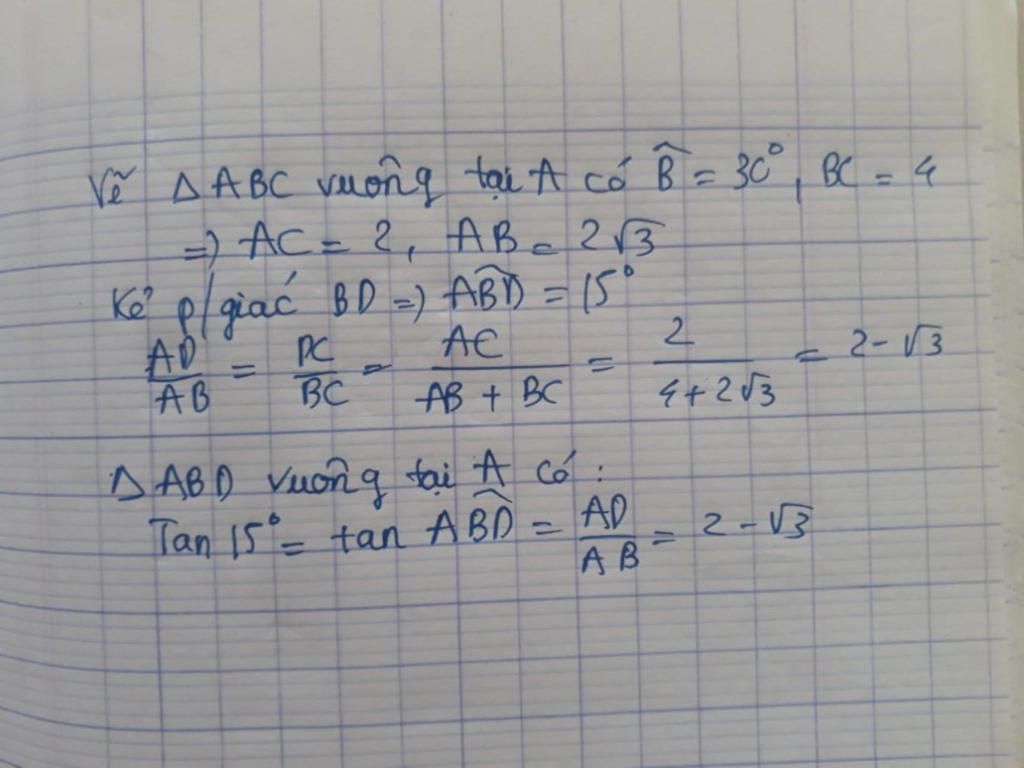 Vẽ Δ ABC vuông tại A có B̂ = 30°, BC = 4
=> AC = 2, AB = 2√3
Kẻ p/giác BD => ABD̂ = 15°
AD/AB = DC/BC = AC/(AB + BC) = 2/(4+2√3) = 2-√3
Δ ABD vuông tại A có:
Tan 15° = tan ABD̂ = AD/AB = 2-√3